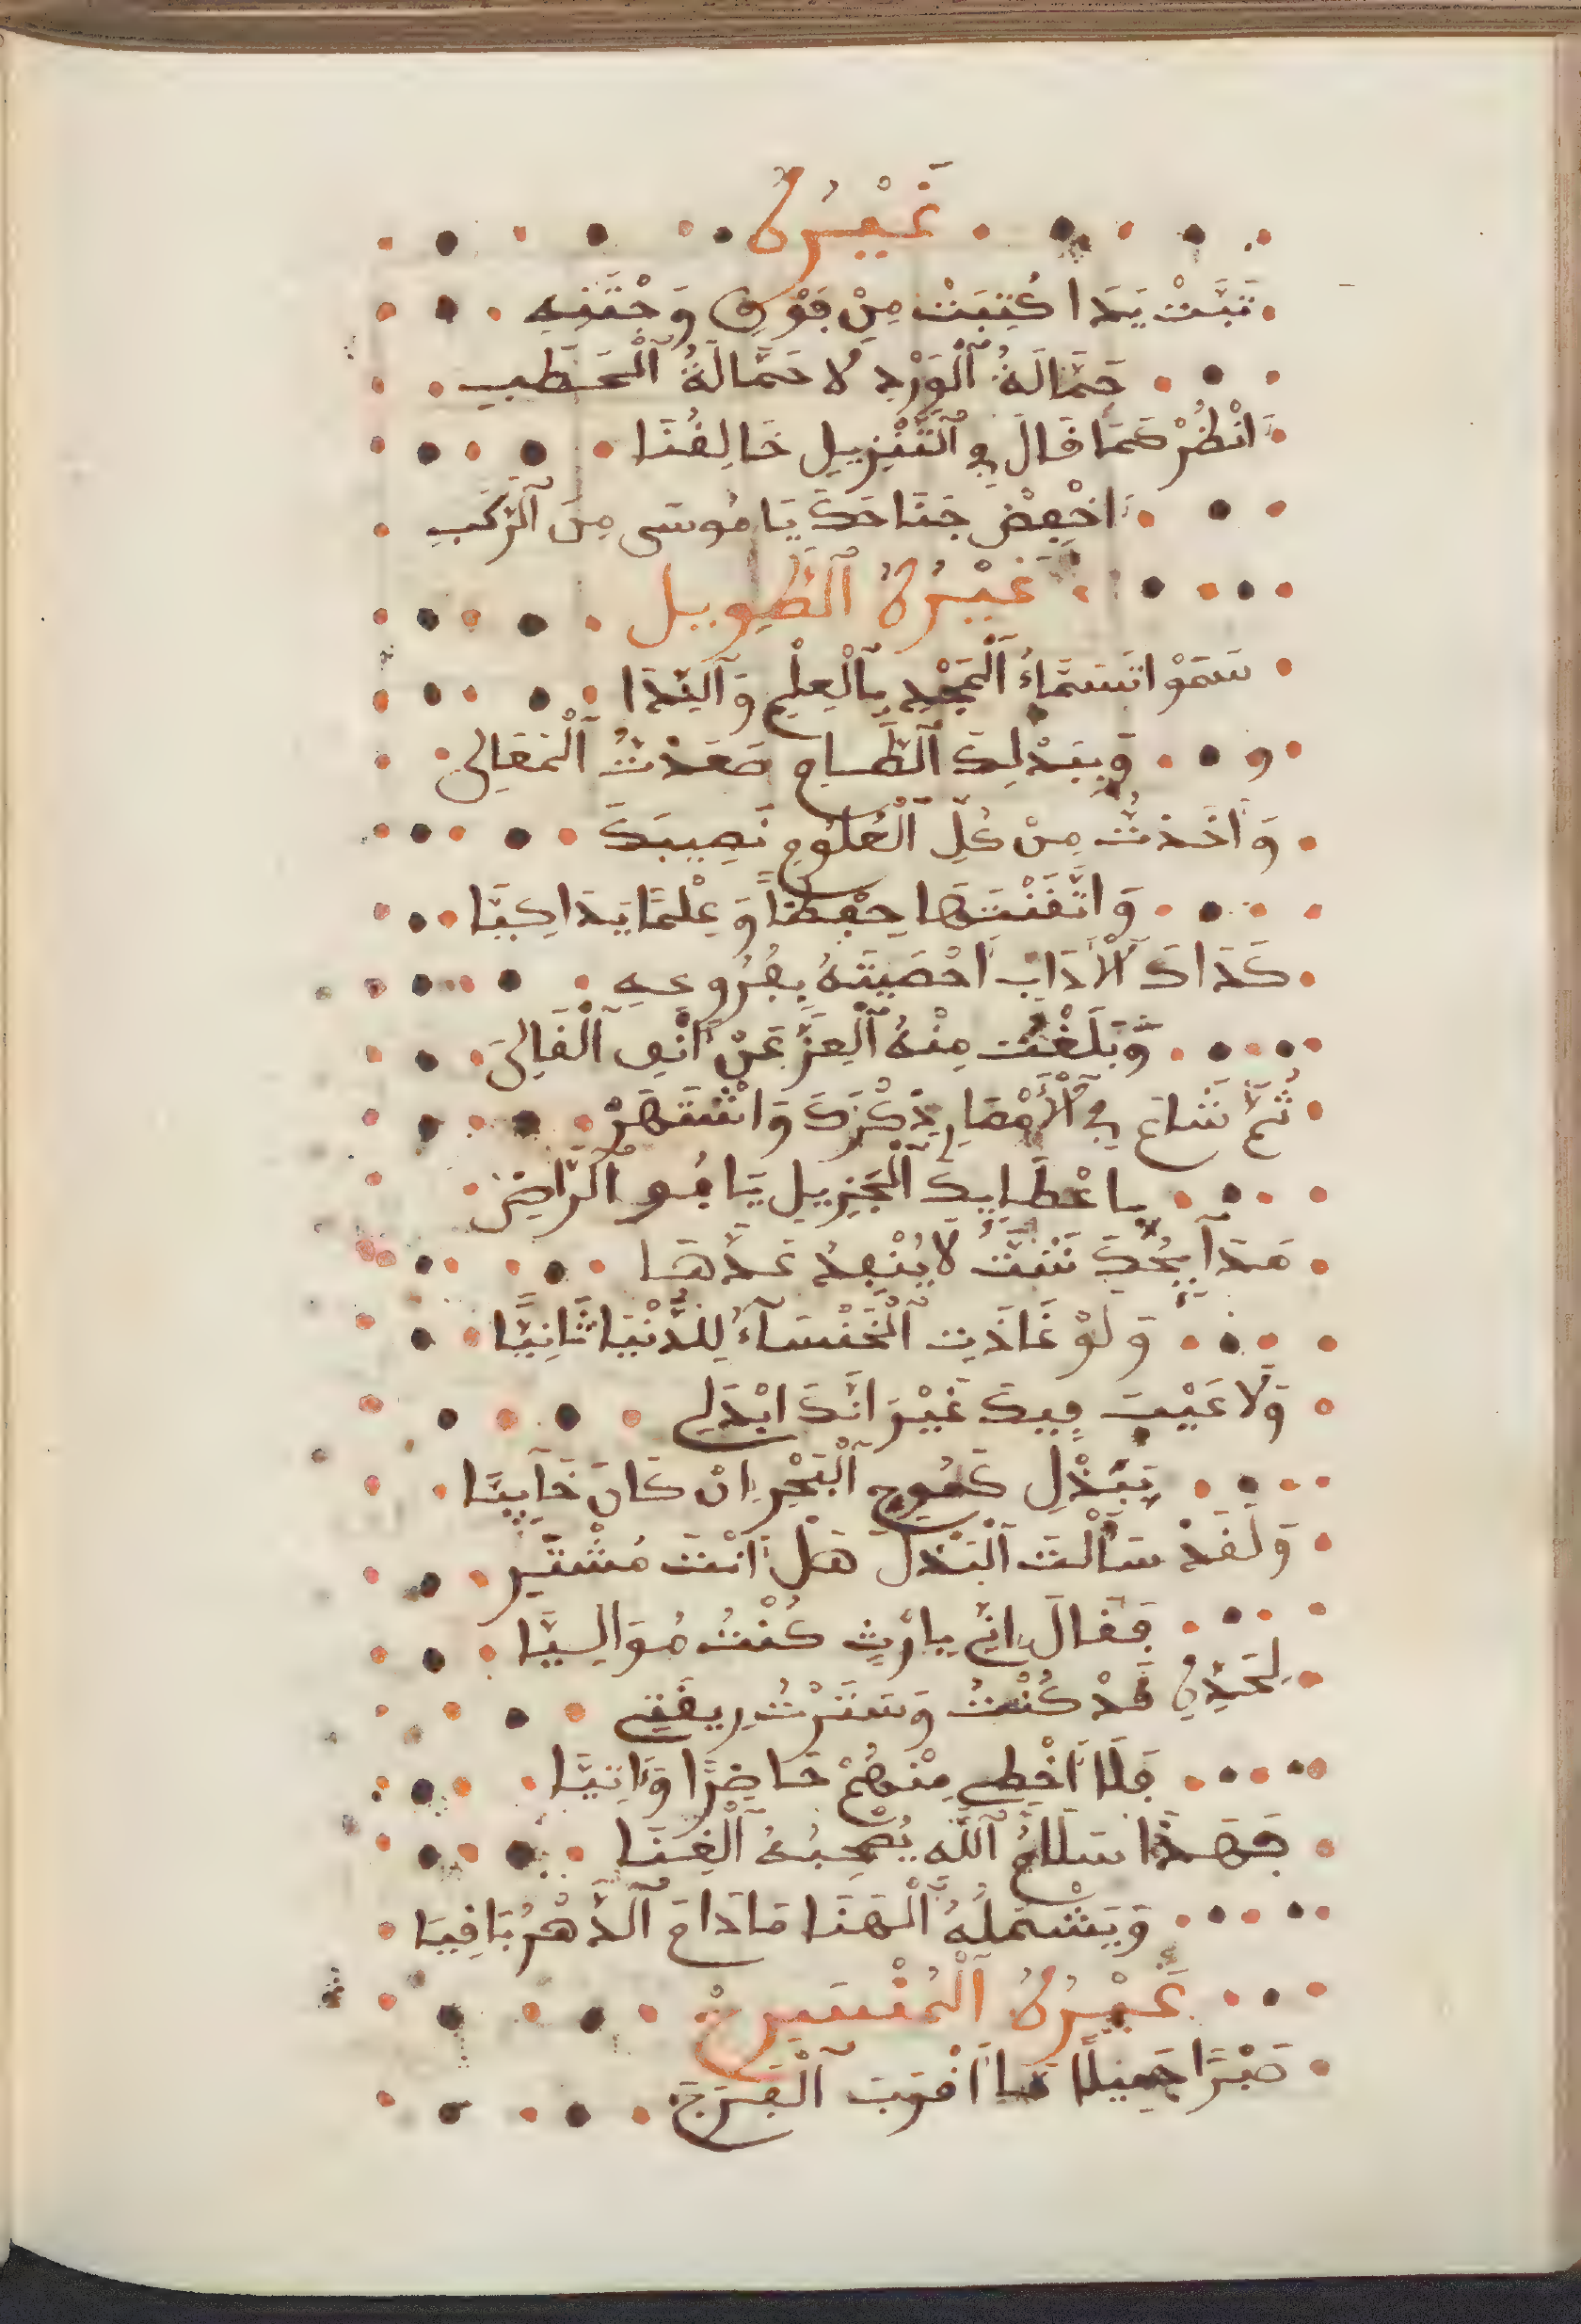 غَيْرُهُ
تَبَّتْ يَدَا كُتِبَتْ مِنْ فَوْقِ وَجْنَتِهِ
حَمَّالَةُ ٱلْوَرْدِ لَا حَمَّالَةُ ٱلْحَطَبِ
اَنْظُرْ كَمَا قَالَ فِي ٱلتَّنْزِيلِ خَالِقُنَا
اَخْفِضْ جَنَاحَكَ يَا مُوسَى مِنَ ٱلرَّكَبِ
غَيْرُهُ ٱلطَّوِيل
سَمَوْا سَمَاءُ ٱلْمَجْدِ بِٱلْعِلْمِ وَٱلنِّدَا
وَبِبَذْلِكَ ٱلطَّامِ صَعَدْتُ ٱلْمَعَالِي
وَأَخَذْتَ مِنْ كُلِّ ٱلْعُلُومِ نَصِيبَكَ
وَاتَّقَنْتَهَا حِفْظًا وَعِلْمًا يَذَاكِيَّا
كَذَاكَ ٱلْأَدَابَ اَحْصَيْتَهُ بِفُرُوعِهِ
وَبَلَغْتَ مِنْهُ ٱلْعِزَّ عَنْ أَنْفِ ٱلْقَالِي
ثُمَّ شَاعَ فِي ٱلْأَمْصَارِ ذِكْرُكَ وَاشْتَهَرْ
بِاعْطَايِكَ ٱلْجَزِيلِ يَا ٱلرَّاضِي
هَذَا لَا يُنْفِدُ عَدَّهَا
وَلَوْ عَادَتِ ٱلْخَنْسَآءُ لِلدُّنْيَا ثَانِيَّا
وَلَا عَيْبَ فِيكَ غَيْرَ انَّكَ ابْذَلِي
بِبَذْلِ كَمَوْجِ ٱلْبَحْرِ اِنْ كَانَ خَآيِبَّا
وَلَقَدْ سَأَلْتَ ٱلْبَذْلَ هَلْ أَنْتَ مُشْتَرٍ
فَقَالَ اِنِّي بِارْثٍ كُنْتُ مُوَالِيًّا
لِجَدِّهِ قَدْ كُنْتُ وَسَتَرْتُ رِيقَتِي
فَلَا أَخْطِي مِنْهُمْ حَاضِرًا وَاتِيَّا
فَهَذَا سَلَامُ ٱللَّهِ يُصْحِبُهُ ٱلْغِنَا
وَيَشْمَلُهُ ٱلْهَنَا مَا دَامَ ٱلدَّهْرُ بَاقِيَا
غَيْرُهُ ٱلْمُنْسَرِحْ
صَبْرًا جَمِيلًا مَا أَقْرَبَ ٱلْفَرَجَ